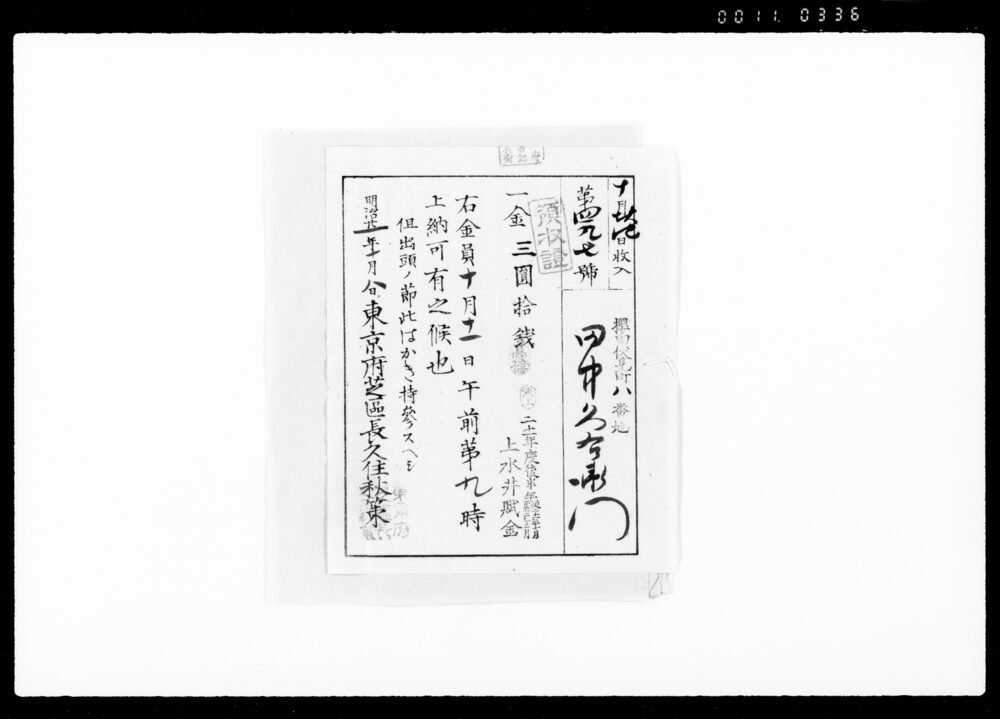 0011.0336
十月 日收入
第四九七號
櫻田伏見町八番地
田中久右衛門
領收證
一金 三圓拾錢
二十一年度後半年
上水井賦金
右金員十月十一日午前第九時
上納可有之候也
但出頭ノ節此はかき持參スヘシ
明治廿一年十月 日東京府芝區長久住秋策
東京府